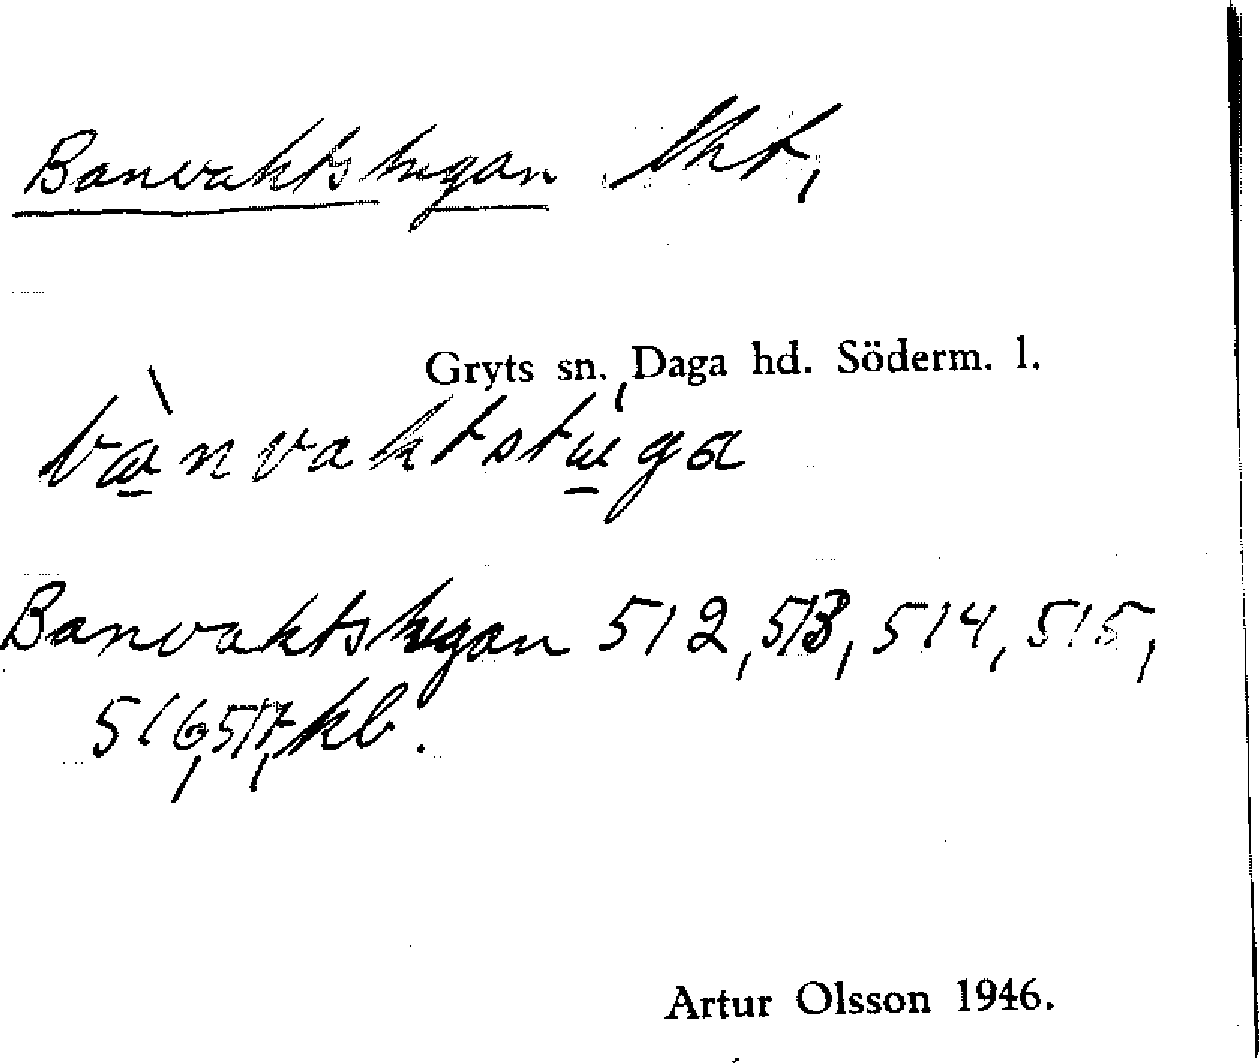 Banvaktstugan lht,
Gryts sn. Daga hd. Söderm. l.
bànvaktstúga
Banvaktstugan 512, 513, 514, 515,
516, 517, kb.
Artur Olsson 1946.